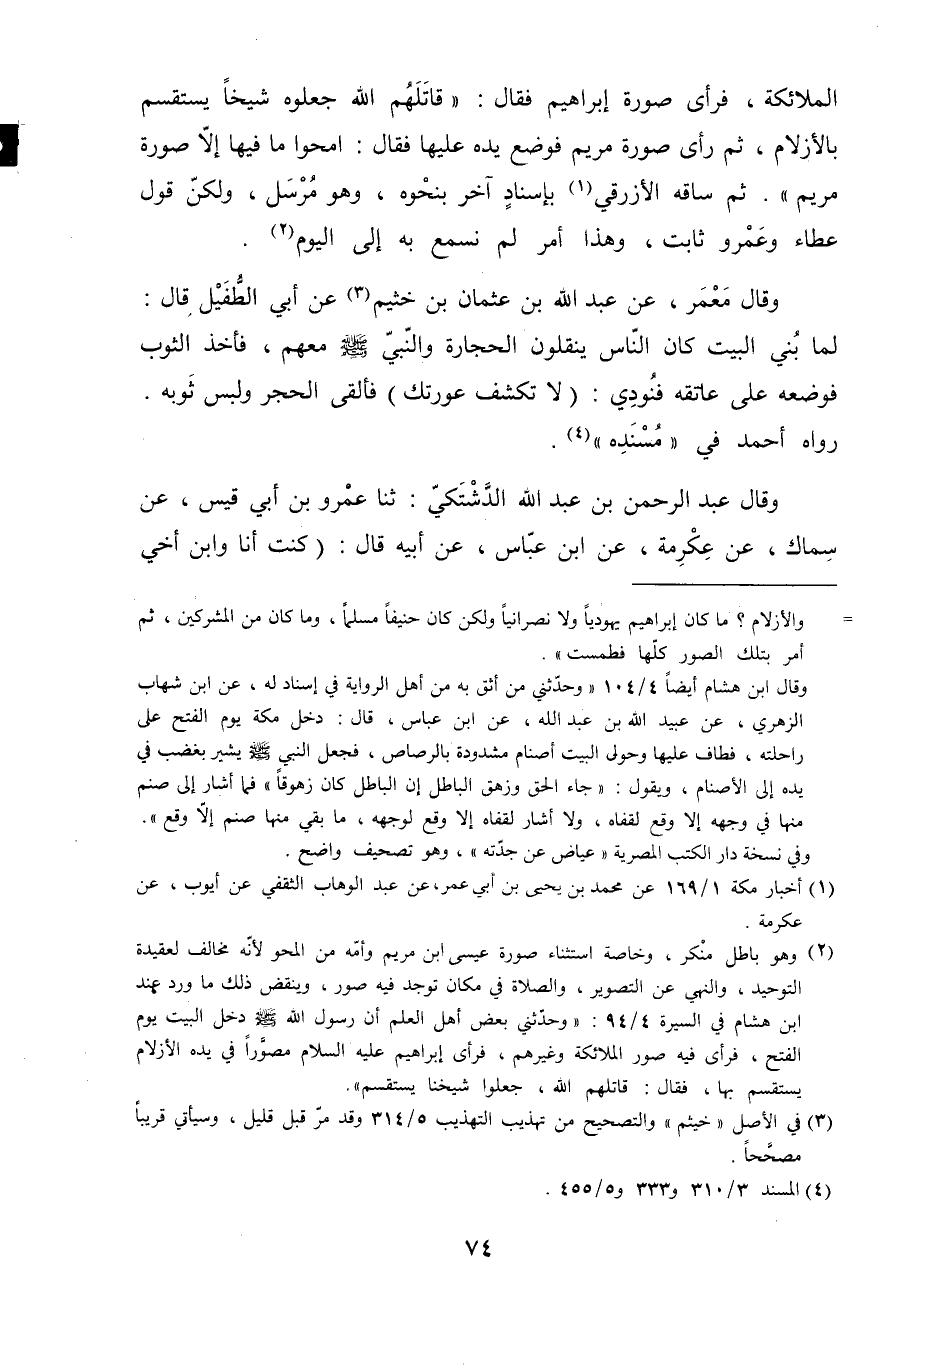 الملائكة ، فرأى صورة إبراهيم فقال : « قاتَلَهُم الله جعلوه شيخاً يستقسم
بالأزلام ، ثم رأى صورة مريم فوضع يده عليها فقال : امحوا ما فيها إلّا صورة
مريم » . ثم ساقه الأزرقي(١) بإسنادٍ آخر بنحْوه ، وهو مُرْسَل ، ولكنّ قول
عطاء وعَمْرو ثابت ، وهذا أمر لم نسمع به إلى اليوم(٢) .
وقال مَعْمَر ، عن عبد الله بن عثمان بن خثيم(٣) عن أبي الطُّفَيْل قال :
لما بُني البيت كان النّاس ينقلون الحجارة والنّبيّ ﷺ معهم ، فأخذ الثوب
فوضعه على عاتقه فنُودِي : ( لا تكشف عورتك ) فألقى الحجر ولبس ثَوبه .
رواه أحمد في « مُسْنَدِه »(٤) .
وقال عبد الرحمن بن عبد الله الدَّشْتَكيّ : ثنا عمْرو بن أبي قيس ، عن
سِماك ، عن عِكْرِمة ، عن ابن عبّاس ، عن أبيه قال : ( كنت أنا وابن أخي
= والأزلام ؟ ما كان إبراهيم يهودياً ولا نصرانياً ولكن كان حنيفاً مسلماً ، وما كان من المشركين ، ثم
أمر بتلك الصور كلّها فطمست » .
وقال ابن هشام أيضاً ١٠٤/٤ « وحدّثني من أثق به من أهل الرواية في إسناد له ، عن ابن شهاب
الزهري ، عن عبيد الله بن عبد الله ، عن ابن عباس ، قال : دخل مكة يوم الفتح على
راحلته ، فطاف عليها وحولى البيت أصنام مشدودة بالرصاص ، فجعل النبي ﷺ يشير بغضب في
يده إلى الأصنام ، ويقول : « جاء الحق وزهق الباطل إن الباطل كان زهوقاً » فما أشار إلى صنم
منها في وجهه إلا وقع لقفاه ، ولا أشار لقفاه إلا وقع لوجهه ، ما بقي منها صنم إلّا وقع » .
وفي نسخة دار الكتب المصرية « عياض عن جدّته » ، وهو تصحيف واضح .
(١) أخبار مكة ١٦٩/١ عن محمد بن يحيى بن أبي عمر، عن عبد الوهاب الثقفي عن أيوب ، عن
عكرمة .
(٢) وهو باطل منْكر ، وخاصة استثناء صورة عيسى ابن مريم وأمّه من المحو لأنّه مخالف لعقيدة
التوحيد ، والنهي عن التصوير ، والصلاة في مكان توجد فيه صور ، وينقض ذلك ما ورد عند
ابن هشام في السيرة ٩٤/٤ : « وحدّثني بعض أهل العلم أن رسول الله ﷺ دخل البيت يوم
الفتح ، فرأى فيه صور الملائكة وغيرهم ، فرأى إبراهيم عليه السلام مصوَّراً في يده الأزلام
يستقسم بها ، فقال : قاتلهم الله ، جعلوا شيخنا يستقسم» .
(٣) في الأصل « خيثم » والتصحيح من تهذيب التهذيب ٣١٤/٥ وقد مرّ قبل قليل ، وسيأتي قريباً
مصحَّحاً .
(٤) المسند ٣١٠/٣ و٣٣٣ و٤٥٥/٥ .
٧٤